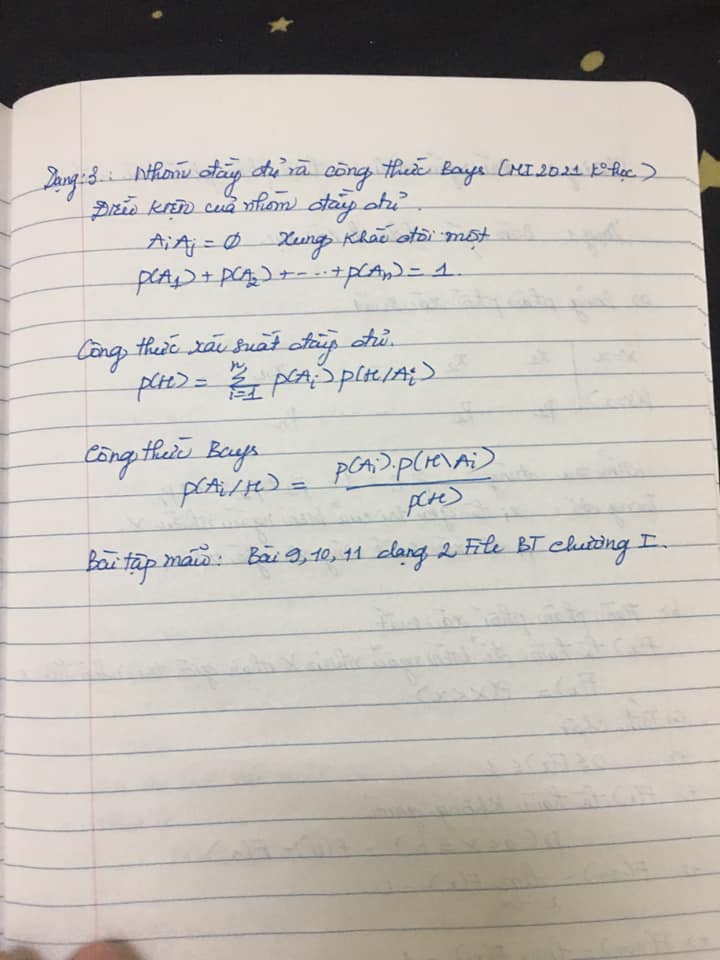 Dạng:3: Nhóm đầy đủ và công thức Bays (MI2021 k° học)
Điều kiện của nhóm đầy đủ.
AiAj = ∅ Xung khắc đôi một
p(A1) + p(A2) + --- + p(An) = 1.
Công thức xác suất đầy đủ.
p(H) = n∑i=1 p(Ai) p(H/Ai)
Công thức Bays
p(Ai/H) = p(Ai).p(H\Ai) / p(H)
Bài tập mẫu: Bài 9, 10, 11 dạng 2 File BT chương I.